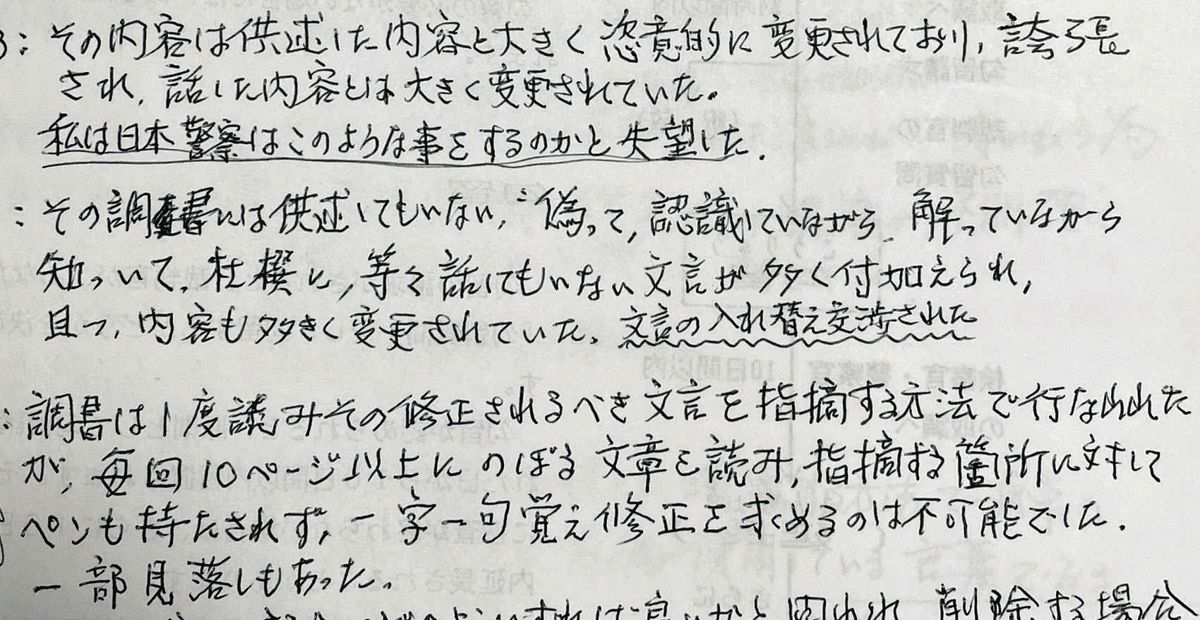 : その内容は供述した内容と大きく恣意的に変更されており、誇張
され、話した内容とは大きく変更されていた。
私は日本警察はこのような事をするのかと失望した.
: その調書には供述してもいない、偽って, 認識していながら、解っていながら
知っいて、杜撰に, 等々話してもいない文言が多く付加えられ,
且つ, 内容も多きく変更されていた。文言の入れ替え交渉された
: 調書は1度読みその修正されるべき文言を指摘する方法で行なわれた
が, 毎回10ページ以上にのぼる文章を読み, 指摘する箇所に対して
ペンも持たされず, 一字一句覚え修正を求めるのは不可能でした.
一部見落しもあった。
すれば良いかと問われ 削除する場合